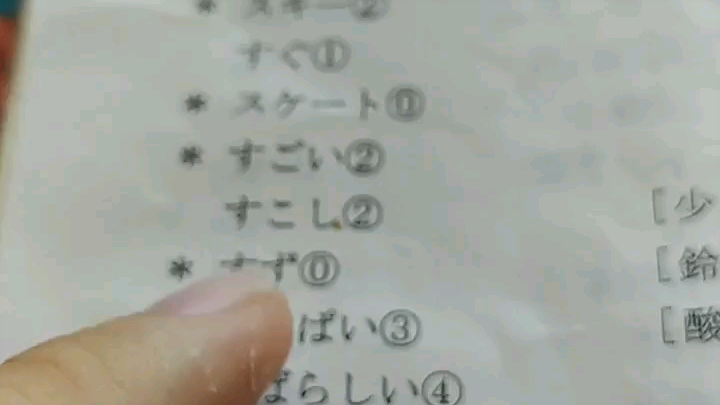 * スキー②
すぐ①
* スケート⓪
* すごい②
すこし② [少
* すず⓪ [鈴
ぱい③ [酸
ばらしい④